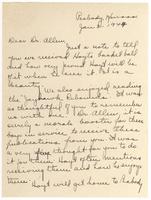 Peabody, Kansas
Jan 5, 1944
Dear Dr. Allen,
Just a note to tell
you we received Hoyt's basket ball
and how very proud Hoyt will be
of it when he sees it. It is a
beauty.
We also enjoyed reading
the Jayhawk Rebounds. It was
so thoughtful of you to remember
us with one. Dr. Allen, it is
surely a morale booster for these
boys in service to receive these
publications from you. It was
a fine thought for you to do
it for them. Hoyt often mentions
receiving them and how he enjoys
them.
Hoyt will get home to Peabody